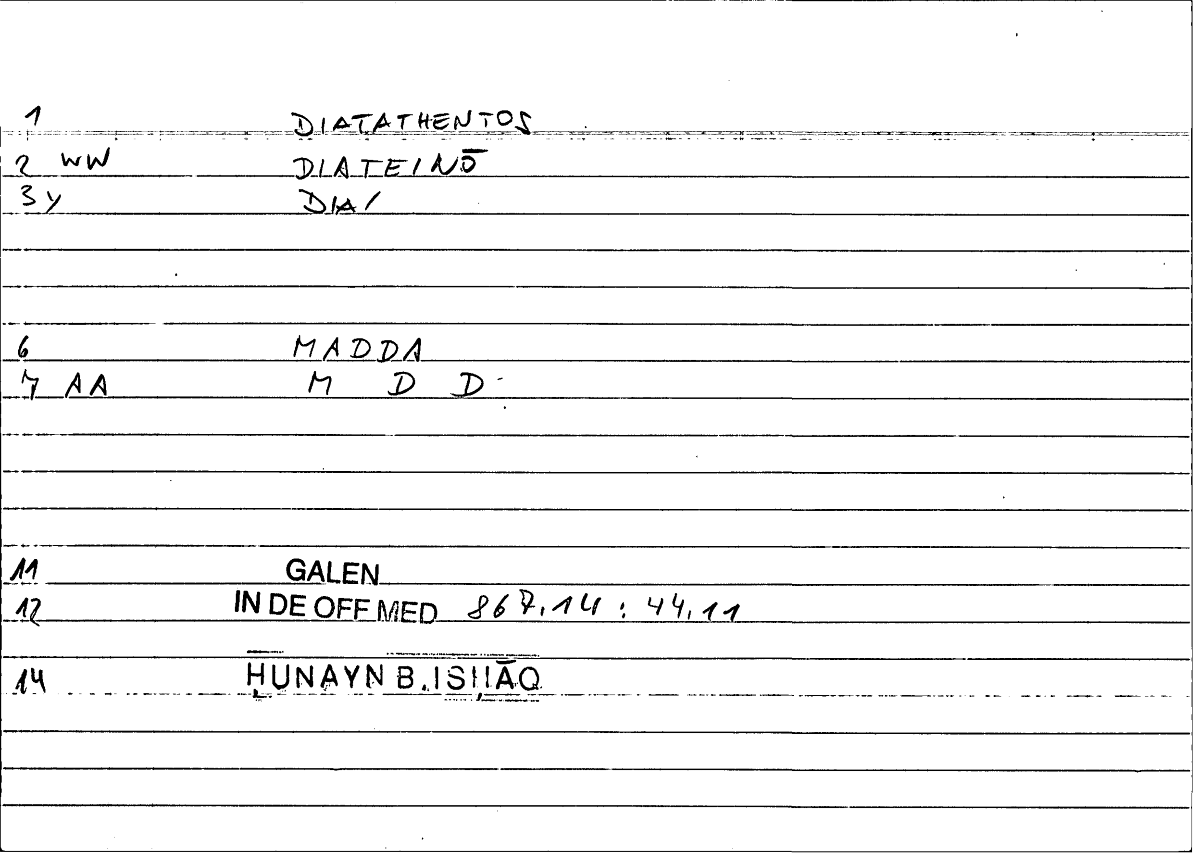 1 DIATATHENTOS
2 WW DIATEINŌ
3 y DIA/
6 MADDA
7 AA M D D
11 GALEN
12 IN DE OFF MED 867.14 : 44.11
14 ḤUNAYN B. ISḤĀQ